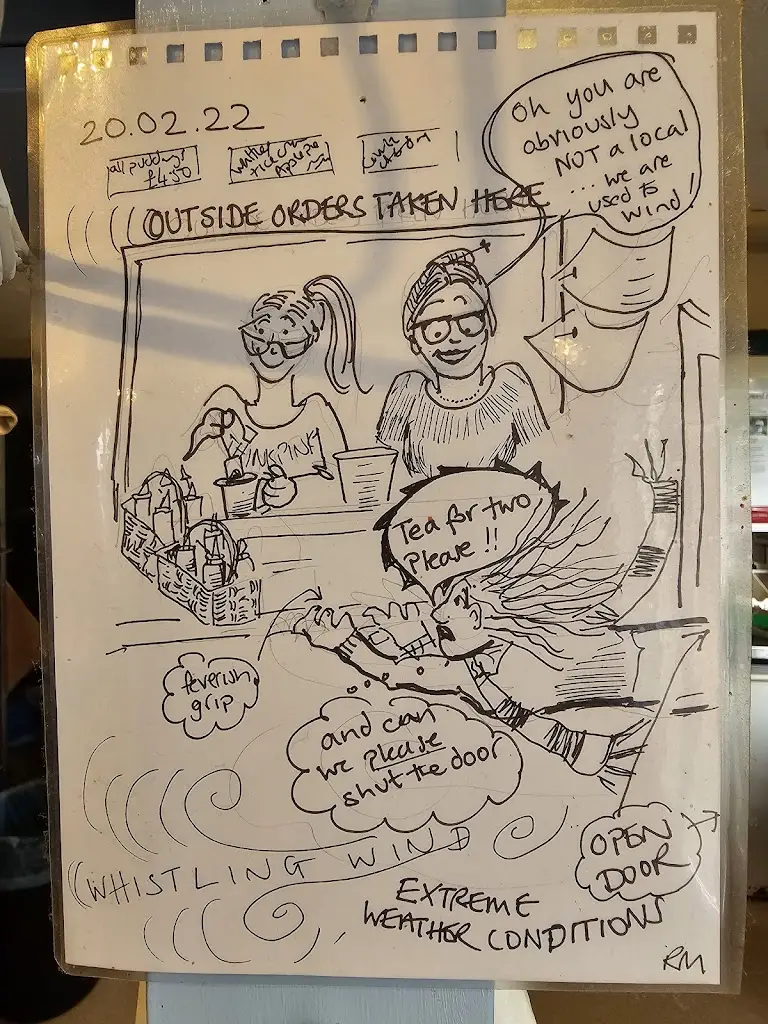 20.02.22
all puddings
£4.50
OUTSIDE ORDERS TAKEN HERE
Oh you are
obviously
NOT a local
... we are
used to
wind!
PINK
Tea for two
Please !!
feverish
grip
and can
we please
shut the door
OPEN
DOOR
WHISTLING WIND
EXTREME
WEATHER CONDITIONS
RM